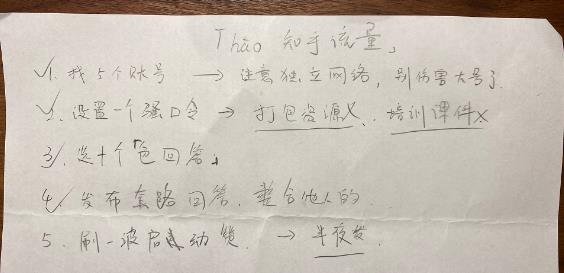 Thāo 知乎流量」
✓1. 找5个账号 → 注意独立网络,别伤害大号了.
✓2. 设置一个强口令 → 打包资源X、培训课件X
3✓. 选十个"色回答」
4✓ 发布套路回答. 整合他人的.
5. 刷一波启动 → 半夜发.